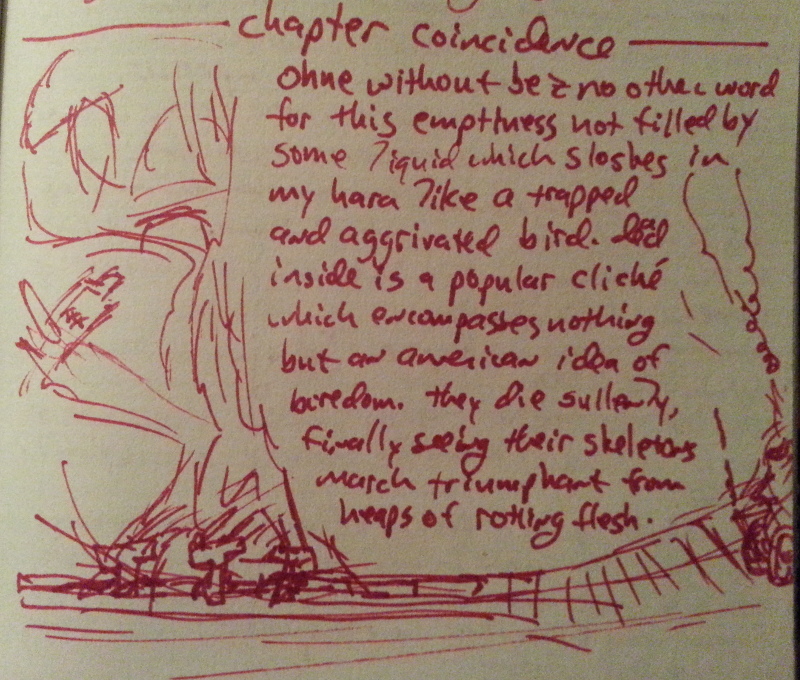 chapter coincidence
ohne without be no other word
for this emptiness not filled by
some liquid which sloshes in
my hara like a trapped
and aggrivated bird. dead
inside is a popular cliché
which encompasses nothing
but an american idea of
boredom. they die sullenly,
finally seeing their skeletons
march triumphant from
heaps of rotting flesh.